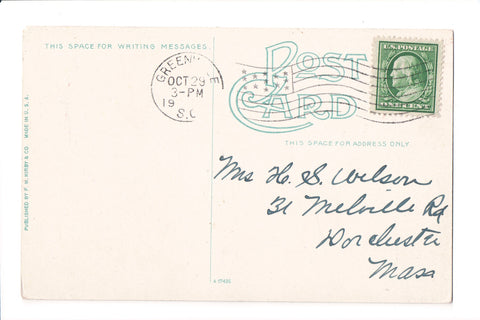 THIS SPACE FOR WRITING MESSAGES
POST
CARD
THIS SPACE FOR ADDRESS ONLY
OCT 29
3-PM
19
S.C
U.S. POSTAGE
ONE CENT
Mrs H. S. Wilson
31 Melville Rd
Dorchester
Mass
PUBLISHED BY F. W. KIRBY & CO. MADE IN U.S.A.